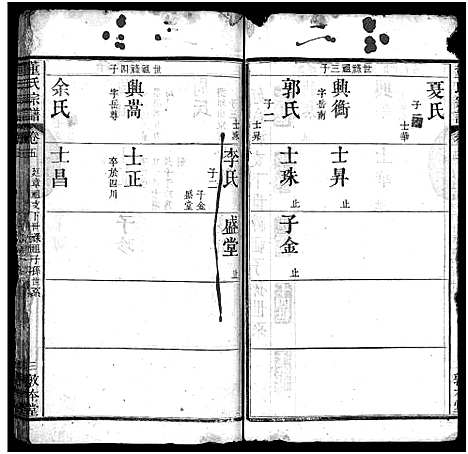 世祿祖三子
夏氏
子二
士華
興衡
字岳南
士昇
止
郭氏
子二
士昇
士珠
士珠
止
子金
止
李氏
子二
子金
盛堂
盛堂
止
世祖祿四子
興嵩
字岳尊
士正
卒於四川
余氏
士昌
董氏宗譜
卷五
三
敦本堂